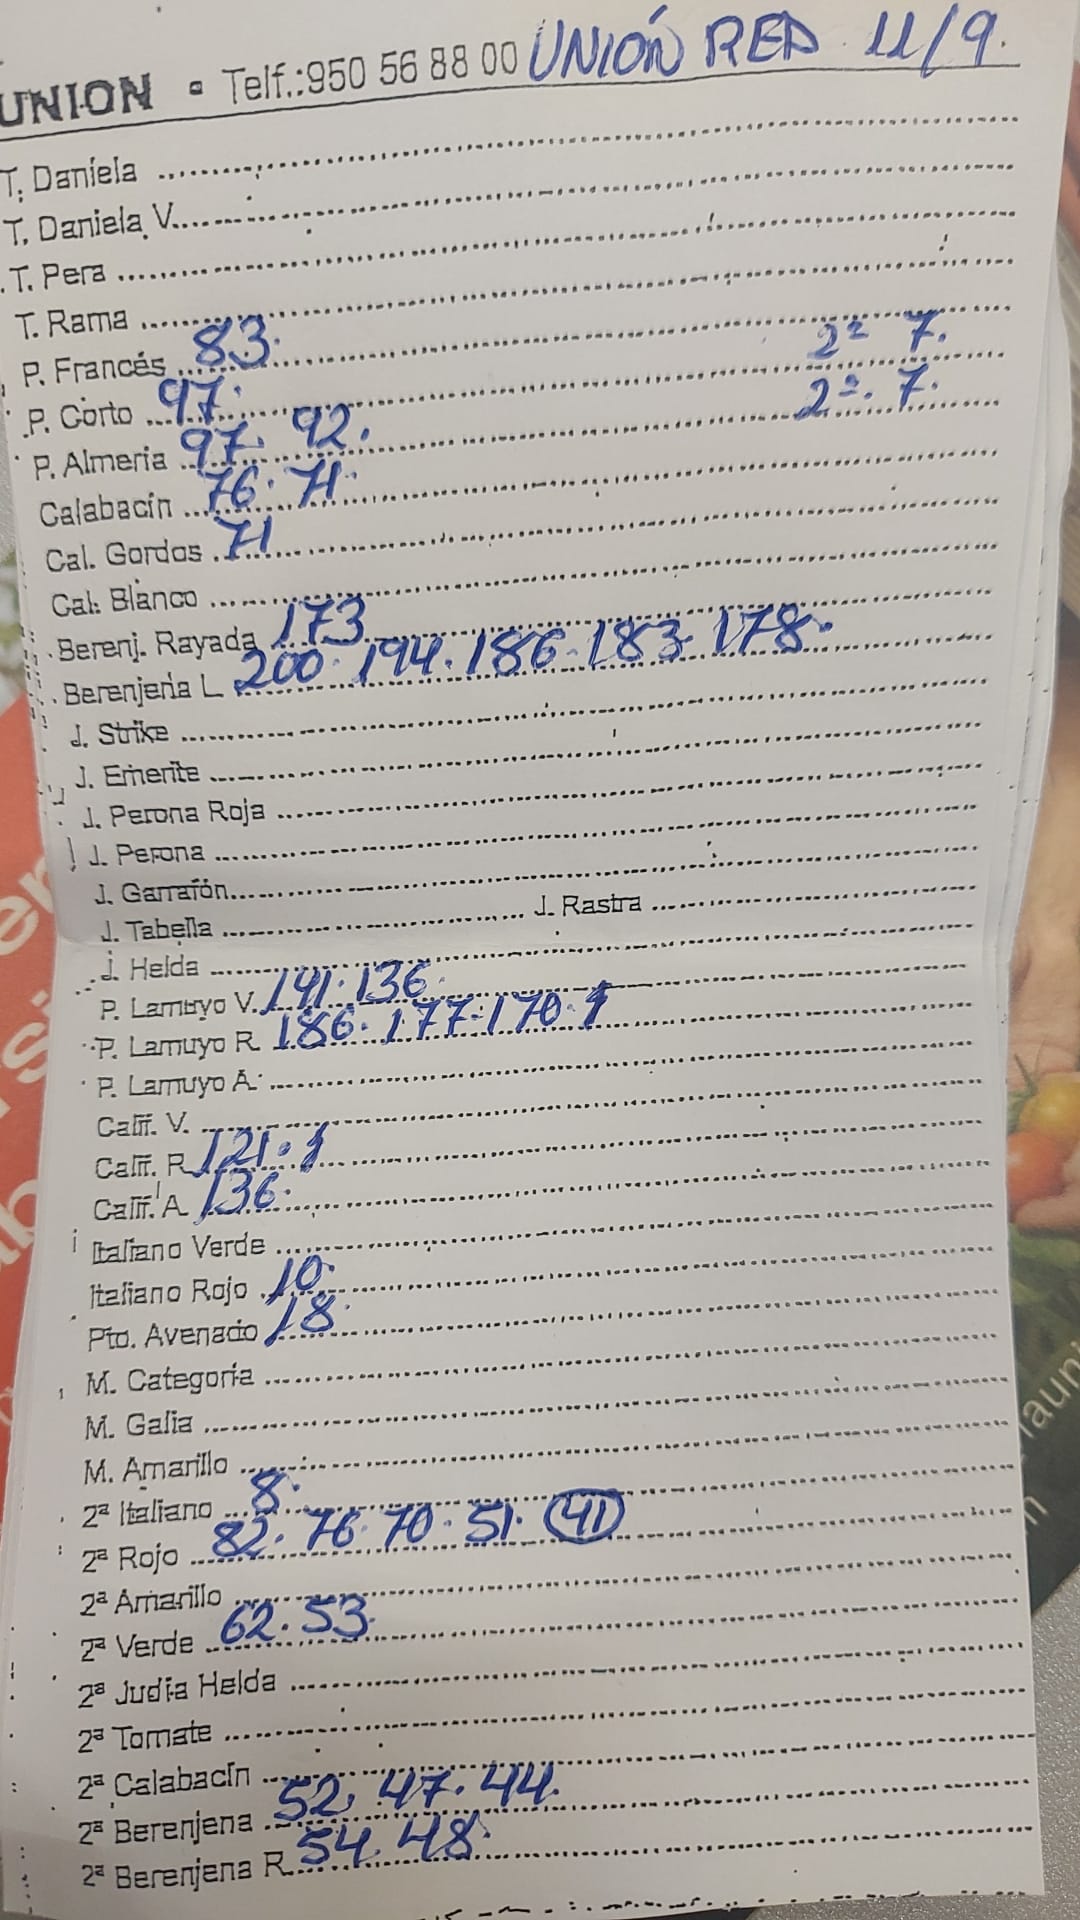 UNION • Telf.:950 56 88 00 UNIÓN RED 11/9.
T. Daniela
T. Daniela V.
T. Pera
T. Rama
P. Francés 83.
P. Corto 97. 2ª 7.
P. Almeria 97. 92. 2ª. 7.
Calabacín 76. 71.
Cal. Gordos 71
Cal. Blanco
Berenj. Rayada 173
Berenjena L 200. 194. 186. 183. 178.
J. Strike
J. Emerite
J. Perona Roja
J. Perona
J. Garrafón
J. Tabella J. Rastra
J. Helda
P. Lamuyo V. 141. 136.
P. Lamuyo R. 186. 177. 170. 1
P. Lamuyo A.
Calif. V.
Calif. R 121. 1
Calif. A 136.
Italiano Verde
Italiano Rojo 10.
Pto. Avenado 18.
M. Categoría
M. Galia
M. Amarillo
2ª Italiano 8.
2ª Rojo 82. 76. 70. 51. 41
2ª Amarillo
2ª Verde 62. 53.
2ª Judía Helda
2ª Tomate
2ª Calabacín
2ª Berenjena 52. 47. 44.
2ª Berenjena R 54. 48.